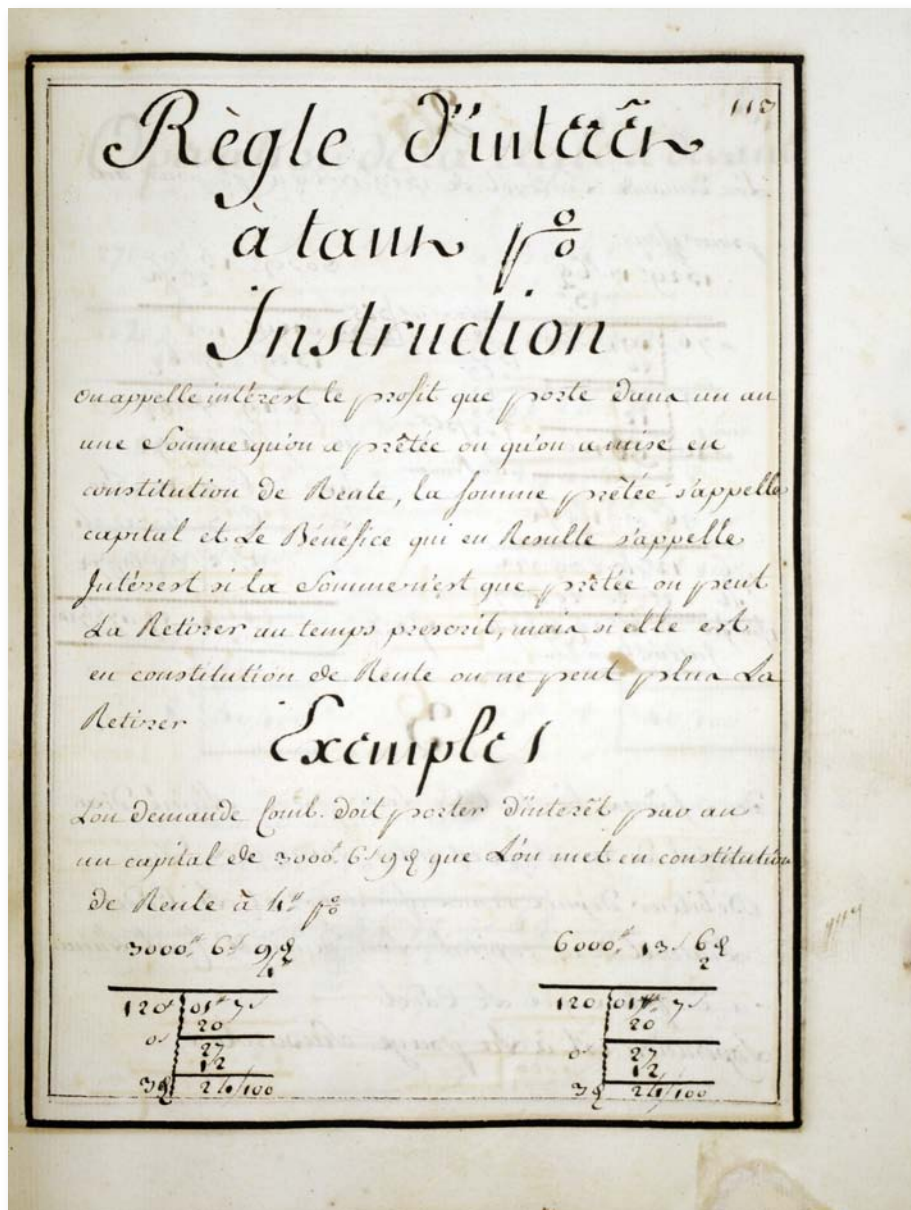 113
Règle d'interêt
à tant p%
Instruction
on appelle intérest le profit que porte dans un an
une Somme qu'on a prêtée ou qu'on a mise en
constitution de Rente, la somme prêtée s'appelle
capital et Le Bénéfice qui en Resulte s'appelle
Intérest si la Somme n'est que prêtée on peut
La Retirer au temps prescrit, mais si elle est
en constitution de Rente on ne peut plus La
Retirer
Exemples
L'on demande Comb. doit porter d'interêt par an
un capital de 3000# 6s 9d que L'on met en constitution
de Rente à 4# p%
3000# 6s 9d
4
120# 01# 7s
20
0s 27
12
3d 24/100
6000# 13s 6d
2
120 01# 7s
20
0s 27
12
3d 24/100